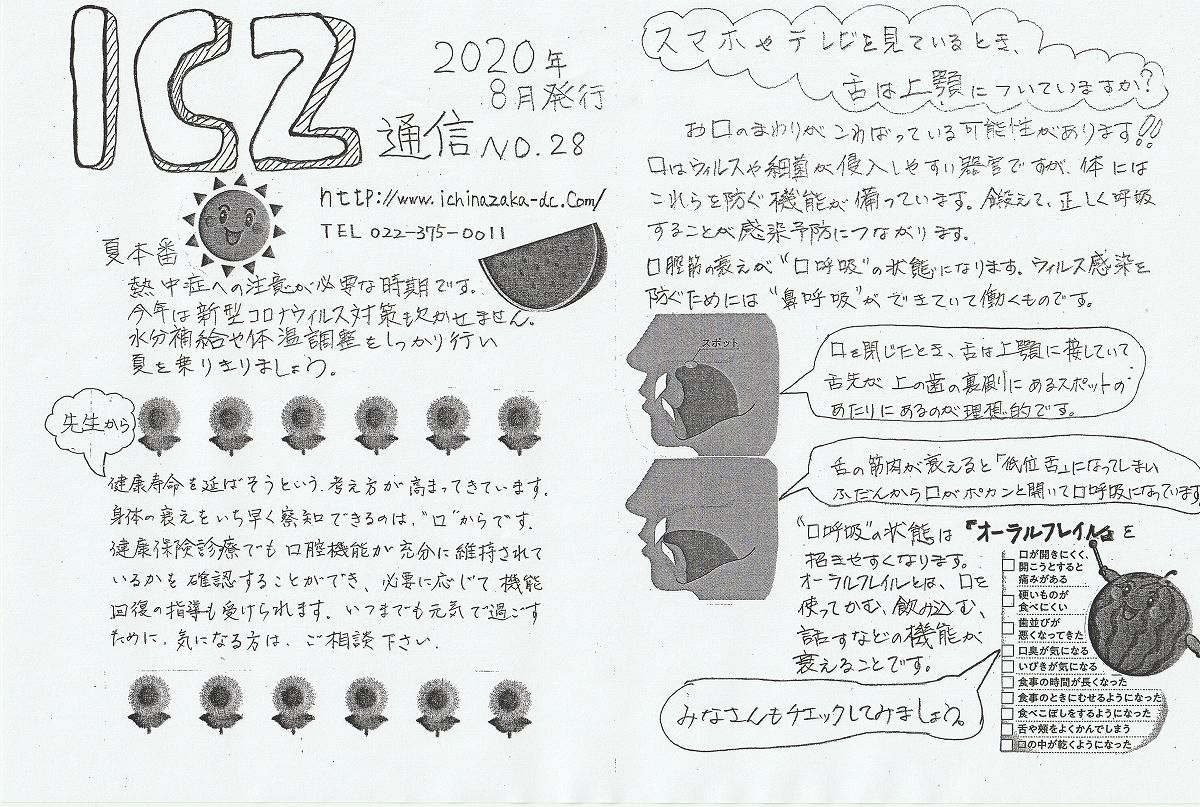 ICZ
通信 NO.28
2020年
8月発行
http://www.ichinazaka-dc.com/
TEL 022-375-0011
夏本番
熱中症への注意が必要な時期です。
今年は新型コロナウィルス対策も欠かせません。
水分補給や体温調整をしっかり行い
夏を乗りきりましょう。
先生から
健康寿命を延ばそうという、考え方が高まってきています。
身体の衰えをいち早く察知できるのは、"口"からです。
健康保険診療でも口腔機能が充分に維持されて
いるかを確認することができ、必要に応じて機能
回復の指導も受けられます。いつまでも元気で過ごす
ために、気になる方は、ご相談下さい。
スマホやテレビを見ているとき、
舌は上顎についていますか?
お口のまわりがこわばっている可能性があります!!
口はウィルスや細菌が侵入しやすい器官ですが、体には
これらを防ぐ機能が備っています。鍛えて、正しく呼吸
することが感染予防につながります。
口腔筋の衰えが"口呼吸"の状態になります。ウィルス感染を
防ぐためには"鼻呼吸"ができていて働くものです。
スポット
口を閉じたとき、舌は上顎に接していて
舌先が上の歯の裏側にあるスポットの
あたりにあるのが理想的です。
舌の筋肉が衰えると「低位舌」になってしまい
ふだんから口がポカンと開いて口呼吸になっています
"口呼吸"の状態は『オーラルフレイル』を
招きやすくなります。
オーラルフレイルとは、口を
使ってかむ、飲み込む、
話すなどの機能が
衰えることです。
みなさんもチェックしてみましょう。
口が開きにくく、
開こうとすると
痛みがある
硬いものが
食べにくい
歯並びが
悪くなってきた
口臭が気になる
いびきが気になる
食事の時間が長くなった
食事のときにむせるようになった
食べこぼしをするようになった
舌や頬をよくかんでしまう
口の中が乾くようになった